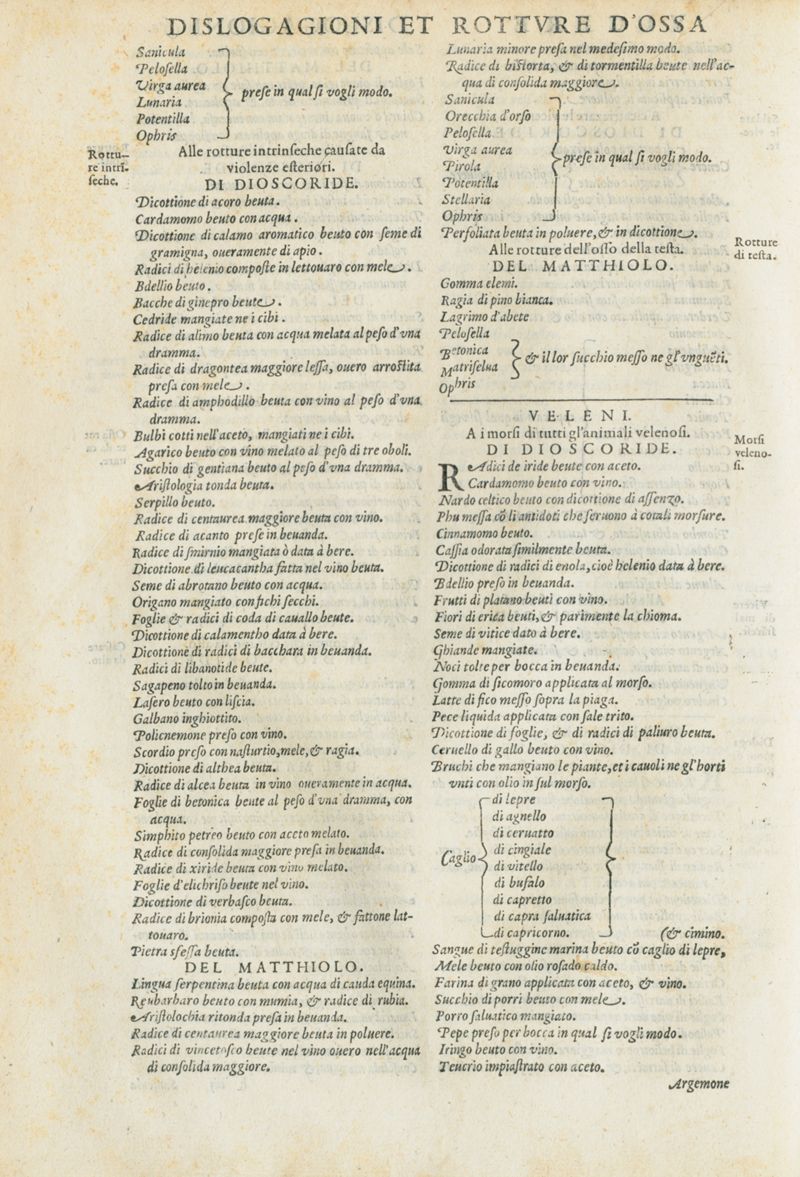 DISLOGAGIONI ET ROTTVRE D'OSSA
Sanicula
Pelosella
Virga aurea
Lunaria
Potentilla
Ophris
prese in qual si vogli modo.
Rottu-
re intri̅
seche.
Alle rotture intrinseche causate da
violenze esteriori.
DI DIOSCORIDE.
Dicottione di acoro beuta.
Cardamomo beuto con acqua.
Dicottione di calamo aromatico beuto con seme di
gramigna, oueramente di apio.
Radici di helenio composte in lettouaro con mele.
Bdellio beuto.
Bacche di ginepro beute.
Cedride mangiate ne i cibi.
Radice di alimo beuta con acqua melata al peso d'vna
dramma.
Radice di dragontea maggiore lessa, ouero arrostita
presa con mele.
Radice di amphodillo beuta con vino al peso d'vna
dramma.
Bulbi cotti nell'aceto, mangiati ne i cibi.
Agarico beuto con vino melato al peso di tre oboli.
Succhio di gentiana beuto al peso d'vna dramma.
Aristologia tonda beuta.
Serpillo beuto.
Radice di centaurea maggiore beuta con vino.
Radice di acanto prese in beuanda.
Radice di smirnio mangiata ò data à bere.
Dicottione di leucacantha fatta nel vino beuta.
Seme di abrotano beuto con acqua.
Origano mangiato con fichi secchi.
Foglie & radici di coda di cauallo beute.
Dicottione di calamentho data à bere.
Dicottione di radici di bacchara in beuanda.
Radici di libanotide beute.
Sagapeno tolto in beuanda.
Lasero beuto con liscia.
Galbano inghiottito.
Policnemone preso con vino.
Scordio preso con nasturtio, mele, & ragia.
Dicottione di althea beuta.
Radice di alcea beuta in vino oueramente in acqua.
Foglie di betonica beute al peso d'vna dramma, con
acqua.
Simphito petreo beuto con aceto melato.
Radice di consolida maggiore presa in beuanda.
Radice di xiride beuta con vino melato.
Foglie d'elichriso beute nel vino.
Dicottione di verbasco beuta.
Radice di brionia composta con mele, & fattone lat-
touaro.
Pietra sfessa beuta.
DEL MATTHIOLO.
Lingua serpentina beuta con acqua di cauda equina.
Reubarbaro beuto con mumia, & radice di rubia.
Aristolochia ritonda presa in beuanda.
Radice di centaurea maggiore beuta in poluere.
Radici di vincetosco beute nel vino ouero nell'acqua
di consolida maggiore.
Lunaria minore presa nel medesimo modo.
Radice di bistorta, & di tormentilla beute nell'ac-
qua di consolida maggiore.
Sanicula
Orecchia d'orso
Pelosella
Virga aurea
Pirola
Potentilla
Stellaria
Ophris
prese in qual si vogli modo.
Perfoliata beuta in poluere, & in dicottione.
Alle rotture dell'osso della testa.
Rotture
di testa.
DEL MATTHIOLO.
Gomma elemi.
Ragia di pino bianca.
Lagrimo d'abete
Pelosella
Betonica
Matriselua
Ophris
& il lor succhio messo ne gl'vnguẽti.
VELENI.
A i morsi di tutti gl'animali velenosi.
Morsi
veleno-
si.
DI DIOSCORIDE.
RAdici de iride beute con aceto.
Cardamomo beuto con vino.
Nardo celtico beuto con dicottione di assenzo.
Phu messa cõ li antidoti che seruono à cotali morsure.
Cinnamomo beuto.
Cassia odorata similmente beuta.
Dicottione di radici di enola, cioè helenio data à bere.
Bdellio preso in beuanda.
Frutti di platano beuti con vino.
Fiori di erica beuti, & parimente la chioma.
Seme di vitice dato à bere.
Ghiande mangiate.
Noci tolte per bocca in beuanda.
Gomma di sicomoro applicata al morso.
Latte di fico messo sopra la piaga.
Pece liquida applicata con sale trito.
Dicottione di foglie, & di radici di paliuro beuta.
Ceruello di gallo beuto con vino.
Bruchi che mangiano le piante, et i cauoli ne gl'horti
vnti con olio in sul morso.
Caglio
di lepre
di agnello
di ceruatto
di cingiale
di vitello
di bufalo
di capretto
di capra saluatica
di capricorno.
(& cimino.
Sangue di testuggine marina beuto cõ caglio di lepre,
Mele beuto con olio rosado caldo.
Farina di grano applicata con aceto, & vino.
Succhio di porri beuto con mele.
Porro saluatico mangiato.
Pepe preso per bocca in qual si vogli modo.
Iringo beuto con vino.
Teucrio impiastrato con aceto.
Argemone